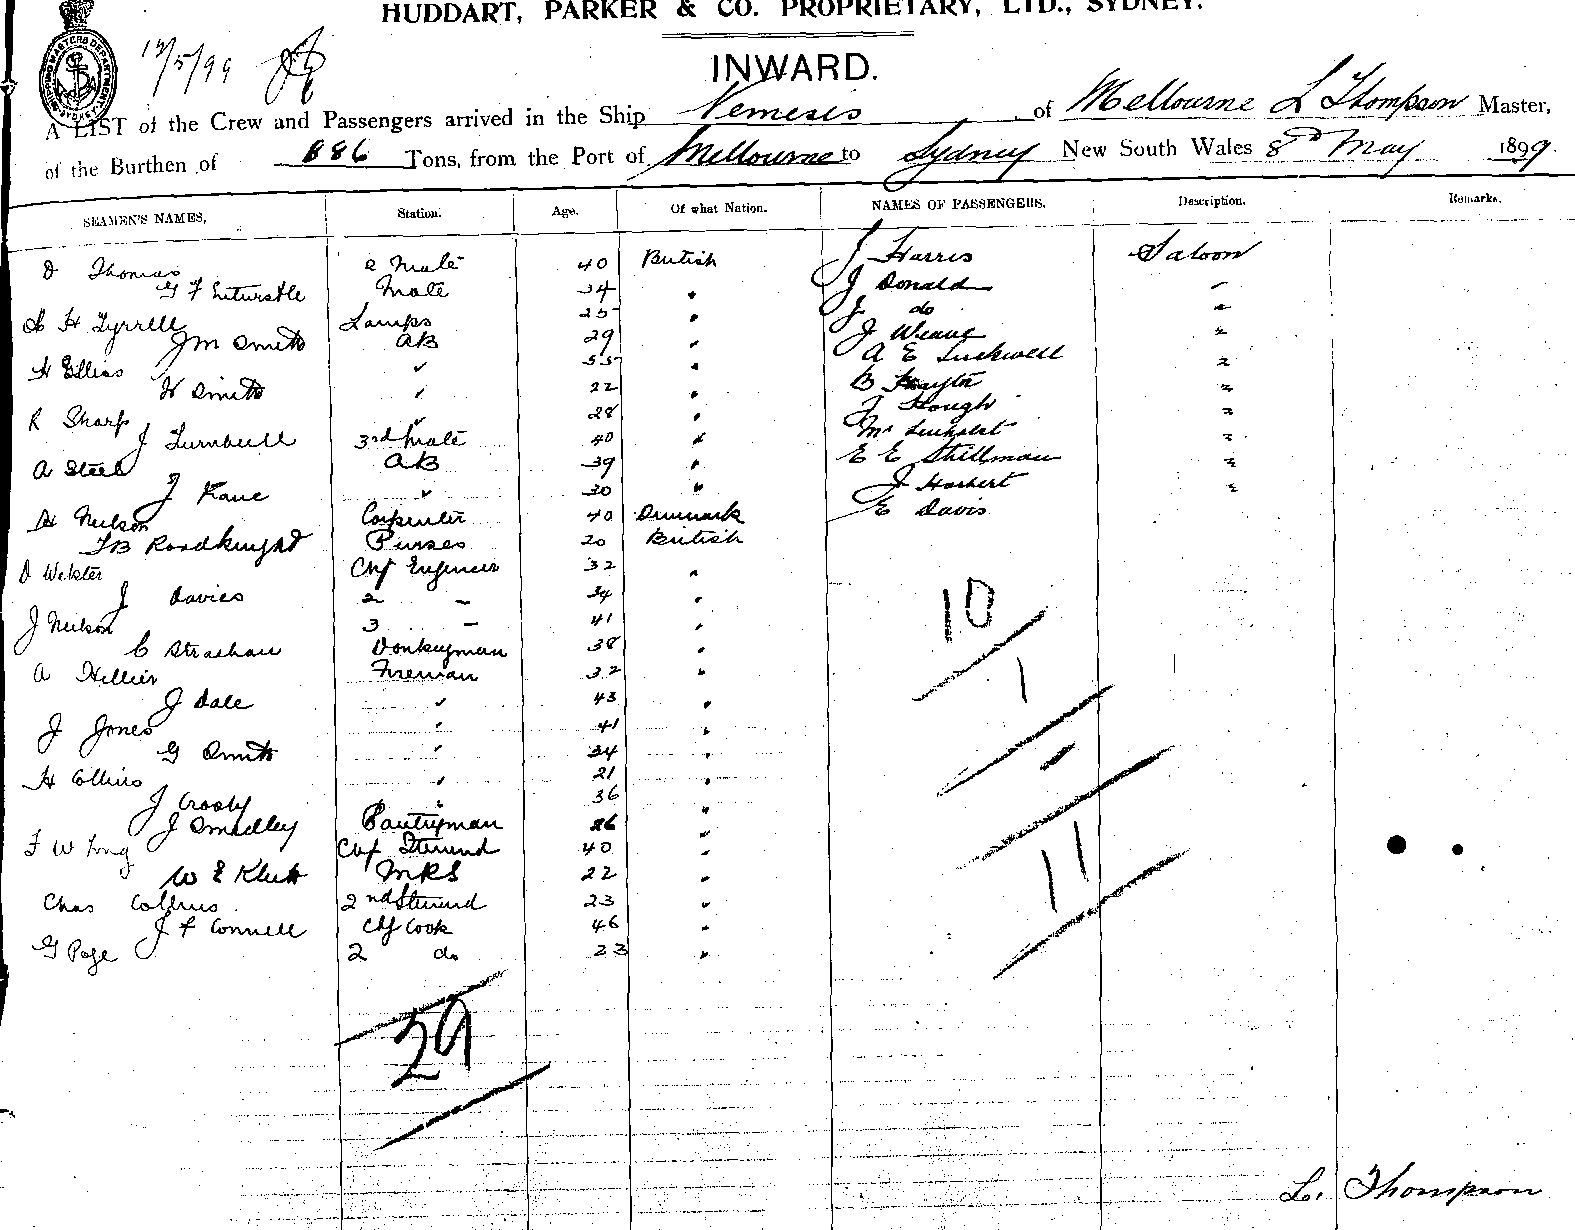 HUDDART, PARKER & CO. PROPRIETARY, LTD., SYDNEY.
12/5/99
INWARD.
A LIST of the Crew and Passengers arrived in the Ship Nemesis of Melbourne L Thompson Master,
of the Burthen of 886 Tons, from the Port of Melbourne to Sydney New South Wales 8 May 1899.
SEAMEN'S NAMES, Station. Age. Of what Nation. NAMES OF PASSENGERS. Description. Remarks.
D Thomas 2 Mate 40 British J Harris Saloon
G F Mate 34 " J Donald "
H Tyrrell Lamps 25 " J do "
J M Smith AB 29 " J Weave "
H Ellias " 55 " A E Luckwell "
H Smith " 22 " B "
R Sharp " 28 " J Hough "
J Turnbull 3rd Mate 40 " Mr "
A Steel AB 39 " E E Stillman "
J Kane " 30 " J Herbert "
H Neilson Carpenter 40 Denmark E Davis
T B Roadknight Purser 20 British
D Webster Chf Engineer 32 "
J Davies 2 " 34 "
J Neilson 3 " 41 "
C Strachan Donkeyman 38 "
A Hellier Fireman 32 "
J Dale " 43 "
J Jones " 41 "
G Smith " 34 "
H Collins " 21 "
J Crosby " 36 "
J Smedley Pantryman 26 "
F W Long Chf Steward 40 "
W E MRS 22 "
Chas Collins 2nd Steward 23 "
J F Connell Chf Cook 46 "
G Page 2 do 23 "
10
1
11
29
L. Thompson